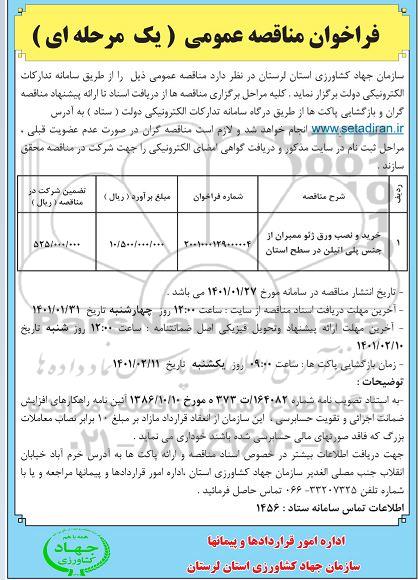 فراخوان مناقصه عمومی ( یک مرحله ای )
سازمان جهاد کشاورزی استان لرستان در نظر دارد مناقصه عمومی ذیل را از طریق سامانه تدارکات
الکترونیکی دولت برگزار نماید . کلیه مراحل برگزاری مناقصه ها از دریافت اسناد تا ارائه پیشنهاد مناقصه
گران و بازگشایی پاکت ها از طریق درگاه سامانه تدارکات الکترونیکی دولت ( ستاد ) به آدرس
www.setadiran.ir انجام خواهد شد و لازم است مناقصه گران در صورت عدم عضویت قبلی ،
مراحل ثبت نام در سایت مذکور و دریافت گواهی امضای الکترونیکی را جهت شرکت در مناقصه محقق
سازند .
ردیف
شرح مناقصه
شماره فراخوان
مبلغ برآورد ( ریال )
تضمین شرکت در
مناقصه ( ریال )
۱
خرید و نصب ورق ژئو ممبران از
جنس پلی اتیلن در سطح استان
۲۰۰۱۰۰۰۱۲۹۰۰۰۰۰۴
۱۰/۵۰۰/۰۰۰/۰۰۰
۵۲۵/۰۰۰/۰۰۰
- تاریخ انتشار مناقصه در سامانه مورخ ۱۴۰۱/۰۱/۲۷ می باشد .
- آخرین مهلت دریافت اسناد مناقصه از سایت : ساعت ۱۲:۰۰ روز چهارشنبه تاریخ ۱۴۰۱/۰۱/۳۱
- آخرین مهلت ارائه پیشنهاد وتحویل فیزیکی اصل ضمانتنامه : ساعت ۱۲:۰۰ روز شنبه تاریخ
۱۴۰۱/۰۲/۱۰
- زمان بازگشایی پاکت ها : ساعت ۰۹:۰۰ روز یکشنبه تاریخ ۱۴۰۱/۰۲/۱۱
توضیحات :
-به استناد تصویب نامه شماره ۱۶۴۰۸۲/ت ۳۷۳ ه مورخ ۱۳۸۶/۱۰/۱۰ آئین نامه راهکارهای افزایش
ضمانت اجرائی و تقویت حسابرسی ، این سازمان از انعقاد قرارداد مازاد بر مبلغ ۱۰ برابر نصاب معاملات
بزرگ که فاقد صورتهای مالی حسابرسی شده باشند خوداری می نماید .
جهت دریافت اطلاعات بیشتر در خصوص اسناد مناقصه و ارائه پاکت ها به آدرس خرم آباد خیابان
انقلاب جنب مصلی الغدیر سازمان جهاد کشاورزی استان ،اداره امور قراردادها و پیمانها مراجعه و یا با
شماره تلفن ۳۳۲۰۷۳۲۵-۰۶۶ تماس حاصل فرمائید .
اطلاعات تماس سامانه ستاد : ۱۴۵۶
اداره امور قراردادها و پیمانها
سازمان جهاد کشاورزی استان لرستان
جهاد
کشاورزی